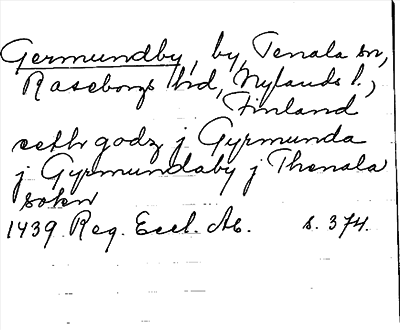 Germundby, by, Tenala sn,
Raseborgs hd, Nylands l.,
Finland
eeth godz j Gyrmunda
j Gyrmundaby j Thenala
sokn
1439 Reg. Eccl. Ab. s. 374.